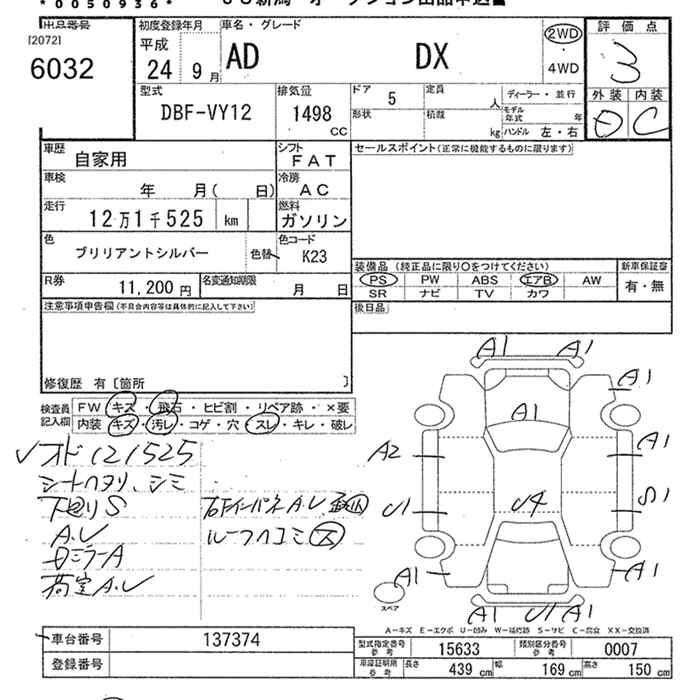 *0050936*
出品番号
[2072]
6032
初度登録年月
平成
24 9月
車名・グレード
AD DX
2WD
・
4WD
評価点
3
型式
DBF-VY12
排気量
1498
CC
ドア
5
形状
定員
人
積載
kg
ディーラー・並行
モデル
年式
年
ハンドル 左・右
外装 内装
D C
車歴
自家用
シフト
FAT
セールスポイント(正常に機能するものに限ります)
車検
年 月( 日)
冷房
AC
走行
12万1千525 km
燃料
ガソリン
色
ブリリアントシルバー
色替
色コード
K23
装備品 (純正品に限り○をつけてください)
PS PW ABS エアB AW
SR ナビ TV カワ
新車保証書
有・無
R券
11,200円
名変通知期限
月 日
後日品
注意事項申告欄(不具合内容等は具体的に記入して下さい)
修復歴 有〔箇所 〕
検査員
記入欄
FW キズ・飛石・ヒビ割・リペア跡・×要
内装 キズ・汚レ・コゲ・穴・スレ・キレ・破レ
オド121525
シートヘタリ、シミ
下廻りS
A.U
ミラーA
荷室A.U
A.U
ルーフヘコミ
A1 A1
A1
A1
A2
A1
U1
U4
S1
A1
A1
スペア
A1 U1 A1
A-キズ E-エクボ U-凹み W-補修跡 S-サビ C-腐食 XX-交換済
車台番号
137374
登録番号
型式指定番号
参考
15633
類別区分番号
参考
0007
車庫証明用
参考
長さ
439 cm
幅
169 cm
高さ
150 cm